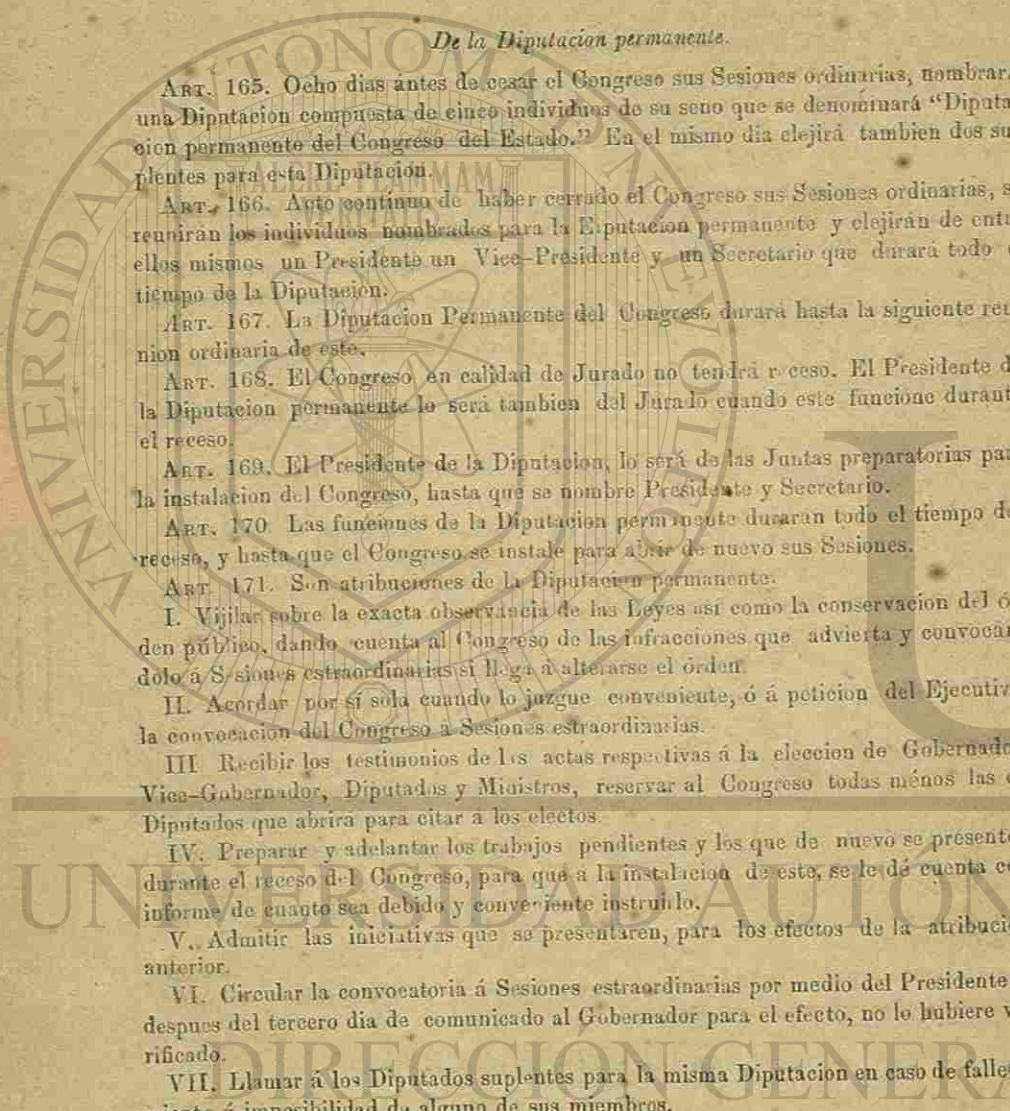 De la Diputacion permanente.
ART. 165. Ocho dias ántes de cesar el Congreso sus Sesiones ordinarias, nombrar
una Diputacion compuesta de cinco individuos de su seno que se denominará “Diputa
cion permanente del Congreso del Estado.” En el mismo dia elejirá tambien dos su
plentes para esta Diputacion.
ART. 166. Acto contínuo de haber cerrado el Congreso sus Sesiones ordinarias, s
reunirán los individuos nombrados para la Diputacion permanente y elejirán de entr
ellos mismos un Presidente un Vice-Presidente y un Secretario que durará todo
tiempo de la Diputacion.
ART. 167. La Diputacion Permanente del Congreso durará hasta la siguiente reu
nion ordinaria de este.
ART. 168. El Congreso en calidad de Jurado no tendrá r ceso. El Presidente d
la Diputacion permanente lo será tambien del Jurado cuando este funcione durant
el receso.
ART. 169. El Presidente de la Diputacion, lo será de las Juntas preparatorias par
la instalacion del Congreso, hasta que se nombre Presidente y Secretario.
ART. 170 Las funciones de la Diputacion permanente duraran todo el tiempo d
receso, y hasta que el Congreso se instale para abrir de nuevo sus Sesiones.
ART. 171. Son atribuciones de la Diputacion permanente.
I. Vijilar sobre la exacta observancia de las Leyes asi como la conservacion del ó
den público, dando cuenta al Congreso de las infracciones que advierta y convocan
dolo á Sesiones estraordinarias si llega á alterarse el órden.
II. Acordar por sí sola cuando lo juzgue conveniente, ó á peticion del Ejecutiv
la convocacion del Congreso a Sesiones estraordinarias.
III Recibir los testimonios de las actas respectivas á la eleccion de Gobernado
Vice-Gobernador, Diputados y Ministros, reservar al Congreso todas ménos las
Diputados que abrira para citar a los electos.
IV. Preparar y adelantar los trabajos pendientes y los que de nuevo se present
durante el receso del Congreso, para que a la instalacion de este, se le dé cuenta c
informe de cuanto sea debido y conveniente instruirlo.
V. Admitir las iniciativas que se presentaren, para los efectos de la atribuci
anterior.
VI. Circular la convocatoria á Sesiones estraordinarias por medio del Presidente
despues del tercero dia de comunicado al Gobernador para el efecto, no lo hubiere v
rificado.
VII. Llamar á los Diputados suplentes para la misma Diputacion en caso de falle
imposibilidad de alguno de sus miembros.
UNIVERSIDAD AUTÓNOMA DE NUEVO LEÓN
ALERE FLAMMAM
VERITATIS
U
UNIVERSIDAD AUTÓN
DIRECCIÓN GENERA